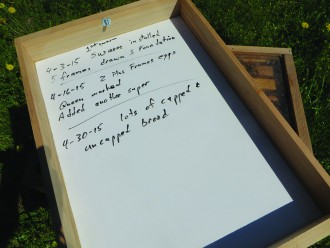 4-3-15 Swarm installed
5 frames drawn 3 Foundation
4-16-15 2 Plus Frames eggs
Queen marked
Added another super
4-30-15 lots of capped &
uncapped brood